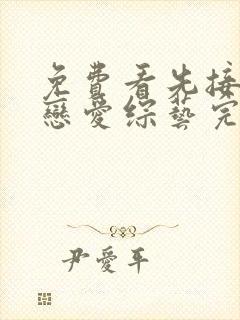 免費看先接
戀愛綜藝完
尹愛平